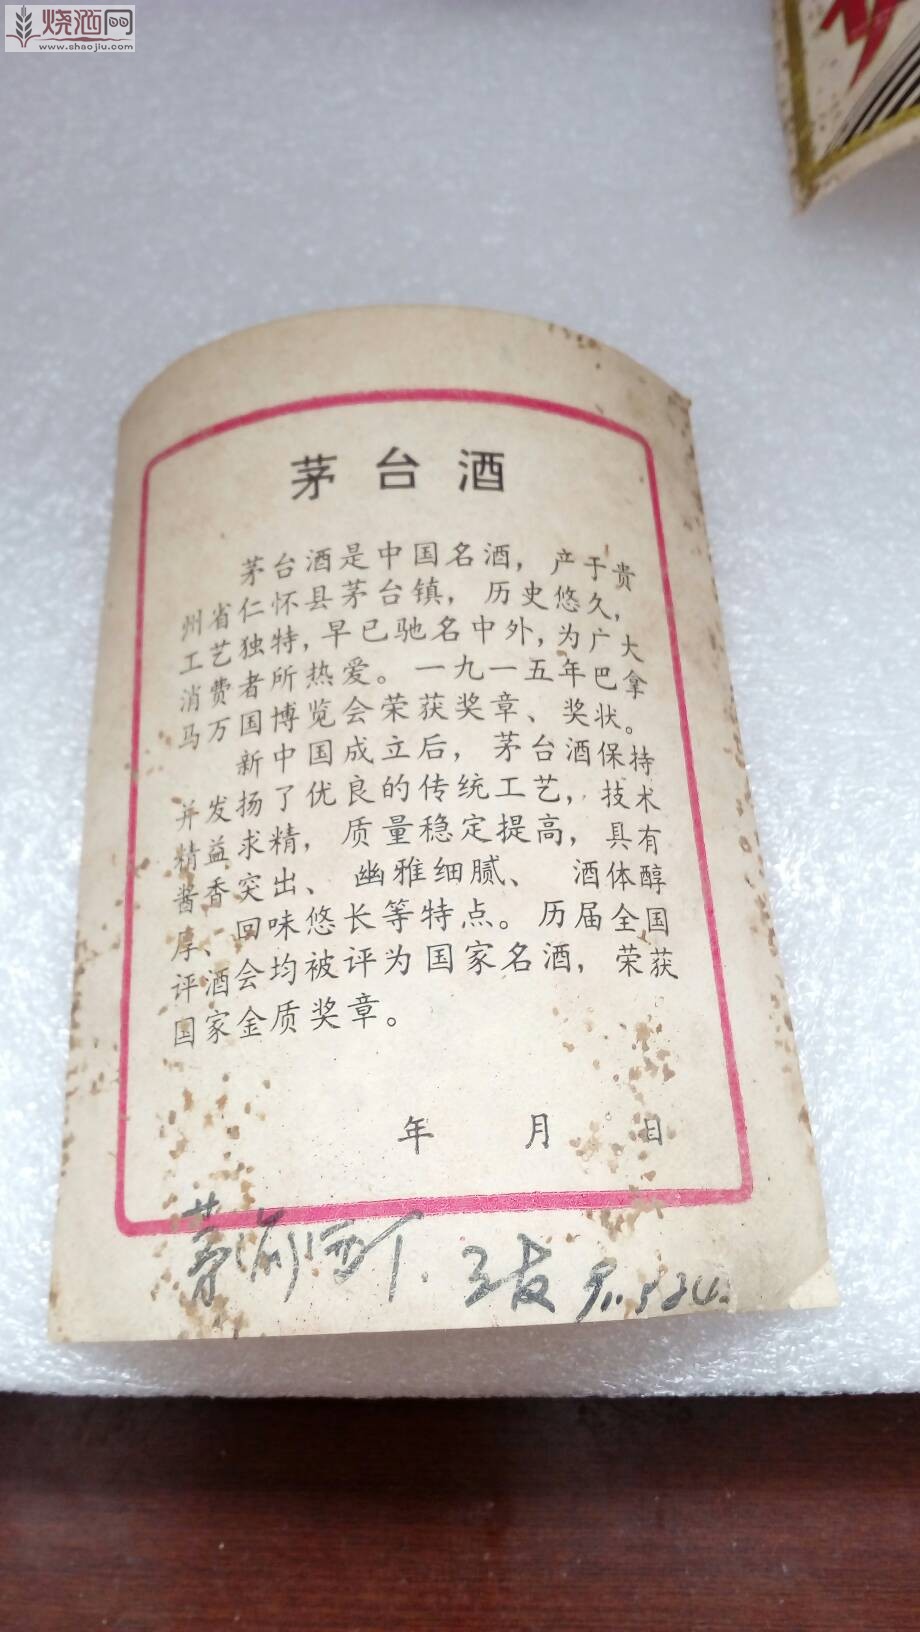 烧酒网
www.shaojiu.com
茅台酒
茅台酒是中国名酒，产于贵
州省仁怀县茅台镇，历史悠久，
工艺独特，早已驰名中外，为广大
消费者所热爱。一九一五年巴拿
马万国博览会荣获奖章、奖状。
新中国成立后，茅台酒保持
并发扬了优良的传统工艺，技术
精益求精，质量稳定提高，具有
酱香突出、幽雅细腻、酒体醇
厚、回味悠长等特点。历届全国
评酒会均被评为国家名酒，荣获
国家金质奖章。
年 月 日
茅